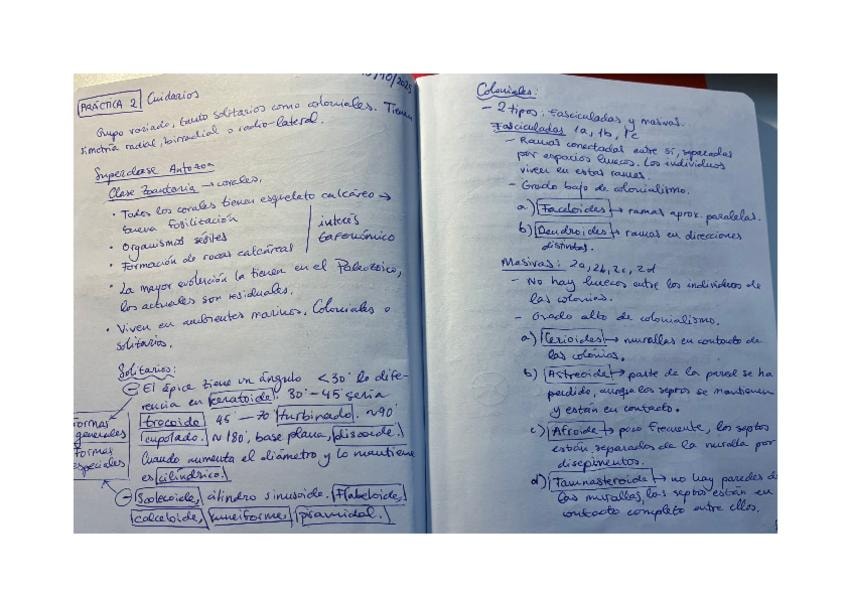 10/2025
PRÁCTICA 2 Cnidarios
Grupo variado, tanto solitarios como coloniales. Tienen
simetría radial, birradial o radio-lateral.
Superclase Antozoa
Clase Zoantaria → corales.
• Todos los corales tienen esqueleto calcáreo →
buena fosilización
• Organismos sésiles
• Formación de rocas calcáreas
interés
tafonómico
• La mayor evolución la tienen en el Paleozoico,
los actuales son residuales.
• Viven en ambientes marinos. Coloniales o
solitarios.
Solitarios:
El ápice tiene un ángulo <30° lo dife-
rencia en Keratoide. 30°-45° sería
trocoide 45°-70° turbinado. ~90°
cupolado. ~180°, base plana, discoide.
Cuando aumenta el diámetro y lo mantiene
es cilíndrico.
formas
generales
Formas
especiales
Scolecoide, cilindro sinusoide. Flabeloide,
calceloide, cuneiforme, piramidal.
Coloniales:
- 2 tipos: Fasciculadas y masivas.
Fasciculadas 1a, 1b, 1c
- Ramas conectadas entre sí, separadas
por espacios huecos. Los individuos
viven en estas ramas.
- Grado bajo de colonialismo.
a) Faceloides → ramas aprox. paralelas.
b) Dendroides → ramas en direcciones
distintas.
Masivas: 2a, 2b, 2c, 2d
- No hay huecos entre los individuos de
las colonias.
- Grado alto de colonialismo.
a) Cerioides → murallas en contacto de
las colonias.
b) Astreoide → parte de la pared se ha
perdido, aunque los septos se mantienen
y están en contacto.
c) Afroide → poco frecuente, los septos
están separados de la muralla por
disepimentos.
d) Tamnasteroide → no hay paredes de
las murallas, los septos están en
contacto completo entre ellos.